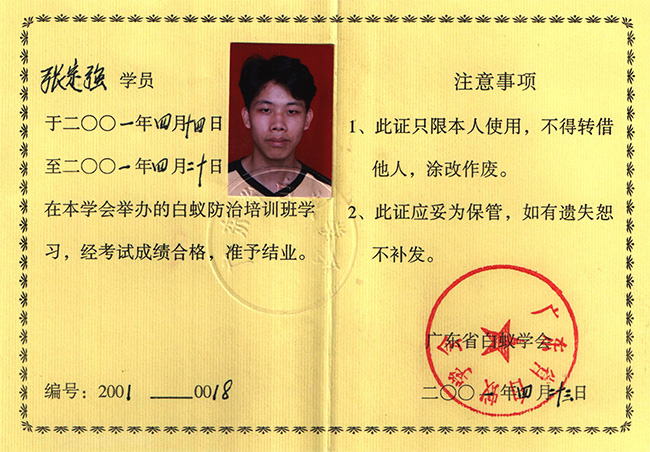 张定强 学员
于二〇〇一年四月十四日
至二〇〇一年四月二十日
在本学会举办的白蚁防治培训班学
习，经考试成绩合格，准予结业。
编号：2001 ____0018
注意事项
1、此证只限本人使用，不得转借
他人，涂改作废。
2、此证应妥为保管，如有遗失恕
不补发。
广东省白蚁学会
广东省白蚁学会
二〇〇一年四月二十三日